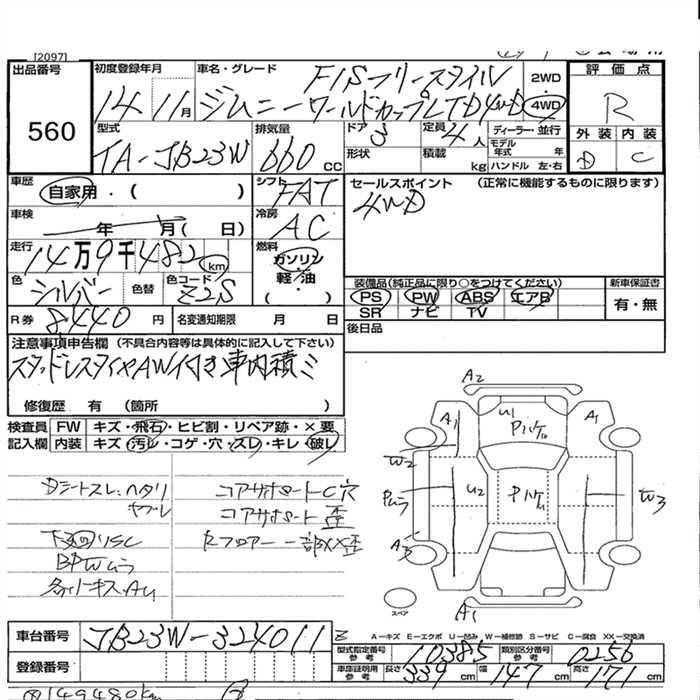 [2097]
出品番号
560
初度登録年月
14 11月
車名・グレード
FISフリースタイル
ジムニーワールドカップLTD4WD
2WD
4WD
評価点
R
外装 内装
D C
型式
TA-JB23W
排気量
660 cc
ドア 3
定員 4人
ディーラー・並行
形状
積載 kg
モデル年式 年
ハンドル 左・右
車歴
自家用・( )
シフト
FAT
セールスポイント (正常に機能するものに限ります)
4WD
車検
年 月( 日)
冷房
AC
走行
14万9千482km
燃料
ガソリン
軽油・
( )
色
シルバー
色替
色コード
Z2S
装備品(純正品に限り○をつけてください)
PS PW ABS エアB
SR ナビ TV
新車保証書
有・無
R券 8440円
名変通知期限 月 日
後日品
注意事項申告欄 (不具合内容等は具体的に記入して下さい)
スタッドレスタイヤAW付き車内積ミ
修復歴 有 (箇所 )
検査員
記入欄
FW キズ・飛石・ヒビ割・リペア跡・×要
内装 キズ・汚レ・コゲ・穴・スレ・キレ・破レ
Dシートスレ・ヘタリ
ヤブレ
下廻りSC
コアサポートC穴
コアサポート歪
Rフロアー一部XX歪
A2
A1
U1
A1
W2
U2
W3
A3
A1
スペア
A－キズ E－エクボ U－凹み W－補修跡 S－サビ C－腐食 XX－交換済
車台番号
JB23W-324011
登録番号
型式指定番号
参考
10385
類別区分番号
参考
0256
車庫証明用
参考
長さ 339 幅 147 高さ 171
149480km